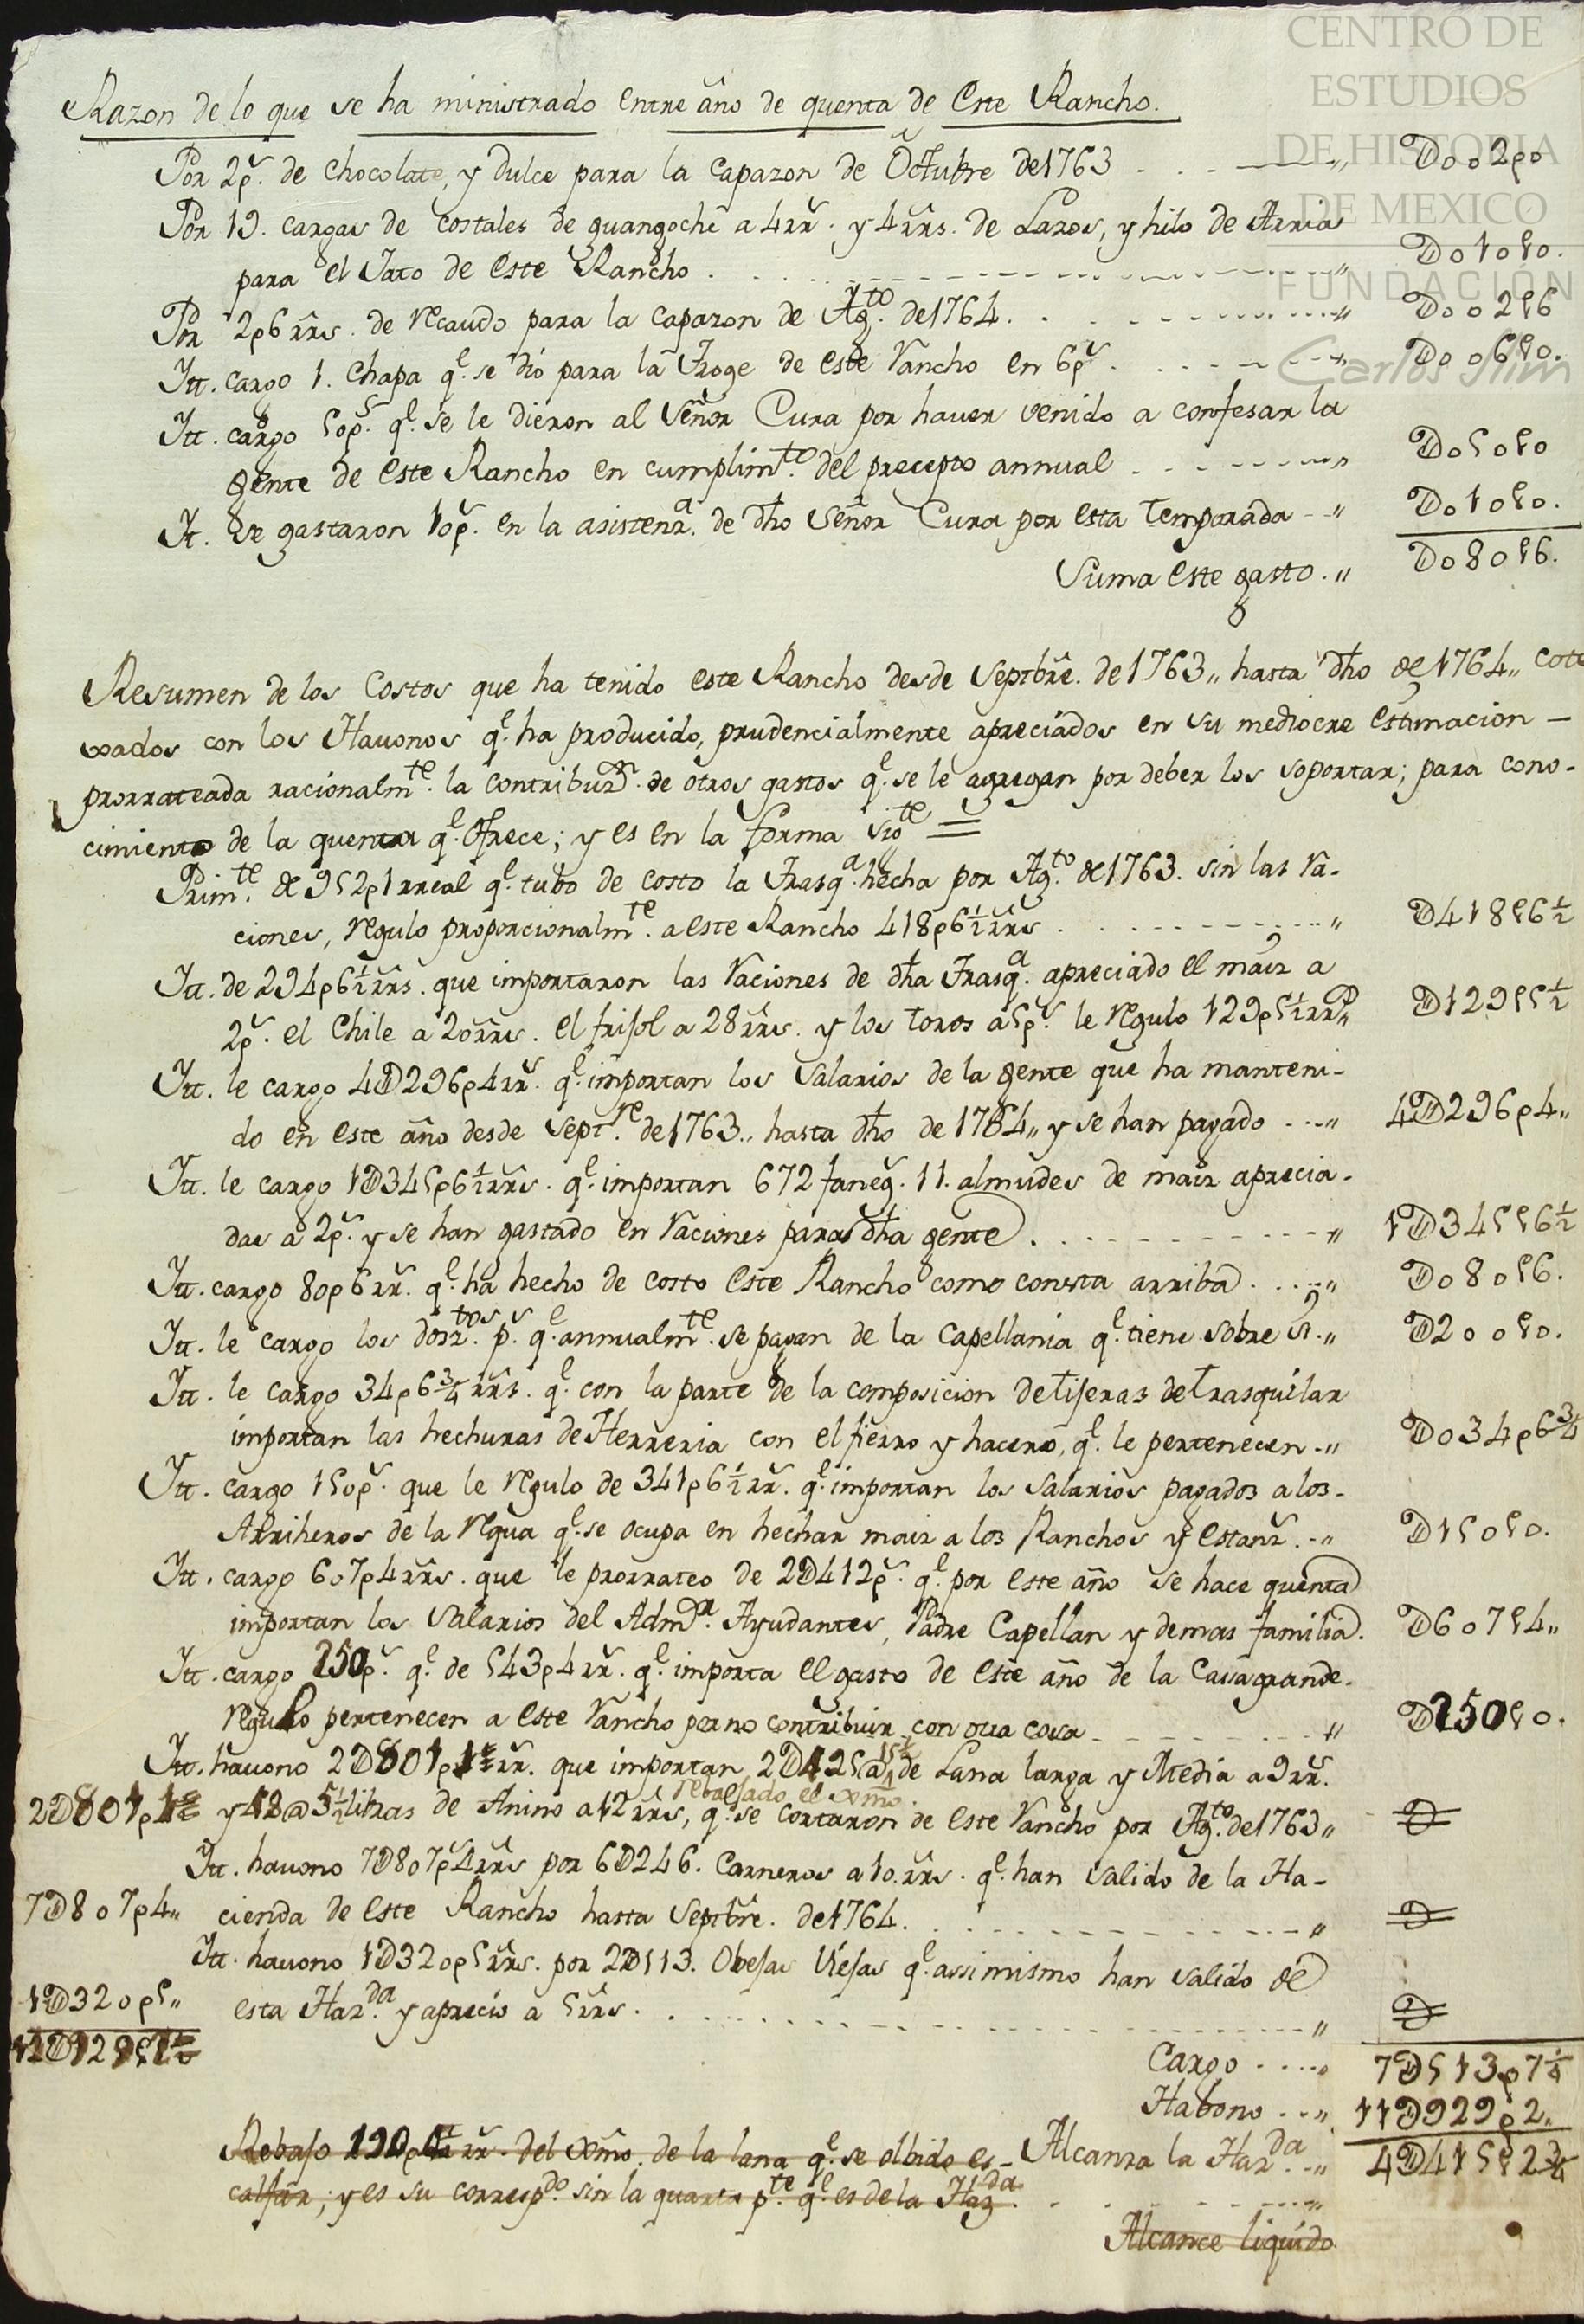 CENTRO DE
ESTUDIOS
DE HISTORIA
DE MEXICO
FUNDACIÓN
Carlos Slim
Razon de lo que se ha ministrado entre año de quenta de este Rancho.
Por 2ps. de chocolate, y dulce para la capazon de Octubre de 1763 . . . D002p0
Por 19. cargas de costales de guangoche a 4rrs. y 4rrs. de Lazos, y hilo de Arria
para el Jato de este Rancho . . . D010p0.
Por 2p6rrs. de recaudo para la capazon de Agto. de 1764. . . D002p6
Itt. cargo 1. Chapa qe. se dió para la Troge de este Rancho en 6ps. . . D006p0.
Itt. cargo 50ps. qe. se le dieron al Señor Cura por haver venido a confesar la
gente de este Rancho en cumplimto. del precepto annual . . . D050p0
It. se gastaron 10ps. en la asistenza. de dho Señor Cura por esta temporada - - D010p0.
Suma este gasto. D080p6.
Resumen de los Costos que ha tenido este Rancho desde Septbre. de 1763,, hasta dho de 1764,, cote
xados con los Havonos qe. ha producido, prudencialmente apreciados en su mediocre estimacion —
prorrateada racionalmte. la contribuzn. de otros gastos qe. se le agregan por deber los soportar; para cono-
cimiento de la quenta qe. ofrece; y es en la forma sigte =
Primte. de 952p1rreal qe. tubo de costo la Trasqa. hecha por Agto. de 1763. sin las ra-
ciones, regulo proporcionalmte. a este Rancho 418p6½rrs . . . D418p6½
Itt. de 294p6½rrs. que importaron las raciones de dha Trasqa. apreciado el maiz a
2ps. el Chile a 20rrs. el frisol a 28rrs. y los toros a 5ps. le regulo 129p5½rrs D129p5½
Itt. le cargo 4D296p4rrs. qe. importan los salarios de la gente que ha manteni-
do en este año desde Septre. de 1763,, hasta dho de 1764,, y se han pagado ...,, 4D296p4,,
Itt. le cargo 1D345p6½rrs. qe. importan 672 faneg. 11. almudes de maiz aprecia-
das a 2ps. y se han gastado en raciones para dha gente . . . 1D345p6½
Itt. cargo 80p6rrs. qe. ha hecho de costo este Rancho como consta arriba . . . D080p6.
Itt. le cargo los dosztos. ps. qe. annualmte. se pagan de la capellania qe. tiene sobre si.,, D200p0.
Itt. le cargo 34p6¾rrs. qe. con la parte de la composicion de tiferas de trasquilar
importan las hechuras de Herreria con el fierro y hacero, qe. le pertenecen -,, D034p6¾
Itt. cargo 150ps. que le regulo de 341p6½rrs. qe. importan los salarios pagados a los-
Arrieheros de la requa qe. se ocupa en hechar maiz a los Ranchos y estanz. -,, D150p0.
Itt. cargo 607p4rrs. que le prorrateo de 2D412ps. qe. por este año se hace quenta
importan los salarios del Admor. Ayudantes, Padre Capellan y demas familia. D607p4,,
Itt. cargo 250ps. qe. de 543p4rrs. qe. importa el gasto de este año de la Casa grande.
regulo pertenecen a este Rancho por no contribuir con otra cosa . . . D250p0.
Itt. havono 2D801p1½rrs. que importan 2D425@ 15½ de Lana larga y Media a 9rrs.
rebajado el xmo.
2D801p1½ y 48@ 5½ libras de Anino a 12rrs, qe. se cortaron de este Rancho por Agto. de 1763,, D
Itt. havono 7D807p4rrs por 6D246. Carneros a 10.rrs. qe. han salido de la Ha-
7D807p4,, cienda de este Rancho hasta Septbre. de 1764. . . . D
Itt. havono 1D320p5rrs. por 2D113. Obejas Viejas qe. assimismo han salido de
1D320p5,, esta Hazda. y aprecio a 5rrs. . . . D
Cargo . . . . 7D513p7¼
Habono . . ,, 11D929p2,,
Alcanza la Hazda. -,, 4D415p2¾
Rebajo 190p rrs. del xmo. de la lana qe. se olbido es-
calfar; y es su correspdo. sin la quarta pte. qe. es de la Hazda.
Alcance liquido